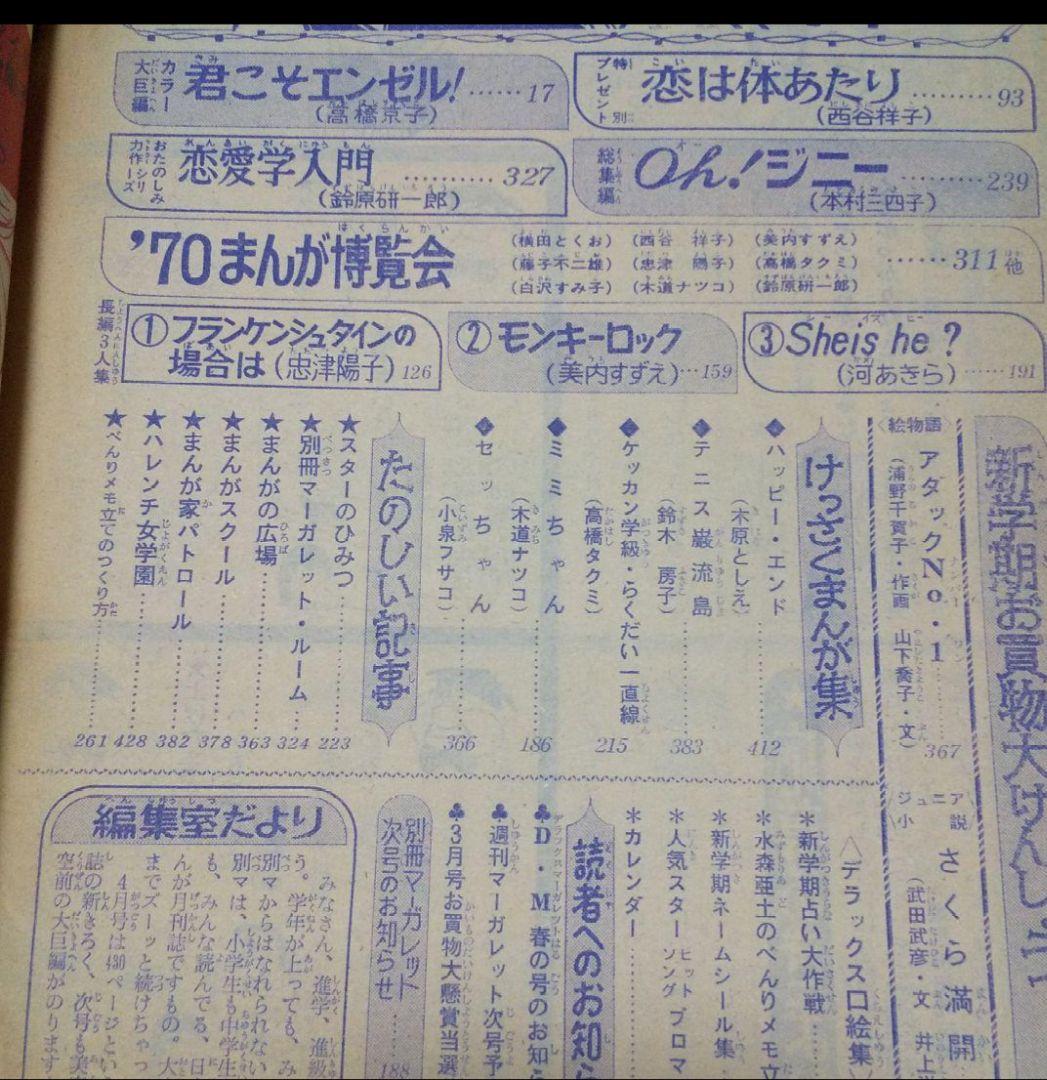 カラー大巨編 君こそエンゼル!……17
(高橋京子)
特別プレゼント 恋は体あたり………93
(西谷祥子)
おたのしみ力作シリーズ 恋愛学入門………327
(鈴原研一郎)
総集編 Oh!ジニー………239
(本村三四子)
'70まんが博覧会
(横田とくお)(西谷 祥子)(美内すずえ)
(藤子不二雄)(忠津 陽子)(高橋タクミ)……311他
(白沢すみ子)(木道ナツコ)(鈴原研一郎)
長編3人集
①フランケンシュタインの
場合は(忠津陽子)126
②モンキーロック
(美内すずえ)…159
③She is he?
(河あきら)……191
新学期お買物大けんしょ
〈絵物語〉
アタックNo.1
(浦野千賀子・作画 山下喬子・文)367
ジュニア小説
さくら満開
(武田武彦・文 井上
けっさくまんが集
◆ハッピー・エンド
(木原としえ)412
◆テニス巌流島
(鈴木 房子)383
◆ケッカン学級・らくだい一直線
(高橋タクミ)215
◆ミミちゃん
(木道ナツコ)186
◆セッちゃん
(小泉フサコ)366
たのしい記事
★スターのひみつ……223
★別冊マーガレット・ルーム…324
★まんがの広場……363
★まんがスクール……378
★まんが家パトロール 382
★ハレンチ女学園……428
★べんりメモ立てのつくり方……261
△デラックス口絵集
*新学期占い大作戦
*水森亜土のべんりメモ立
*新学期ネームシール集
*人気スターヒットソングブロマ
*カレンダー
読者へのお知ら
♣D・M春の号のお知ら
♣週刊マーガレット次号予
♣3月号お買物大懸賞当選
別冊マーガレット
次号のお知らせ……188
編集室だより
みなさん、進学、進級
う。学年が上っても、み
別マからはなれられない
別マは、小学生も中学生
も、みんな読んでる、日
んが月刊誌ですもの。大
までズーッと続けちゃっ
4月号は430ページとい
誌の新きろく、次号も美
空前の大巨編がのります